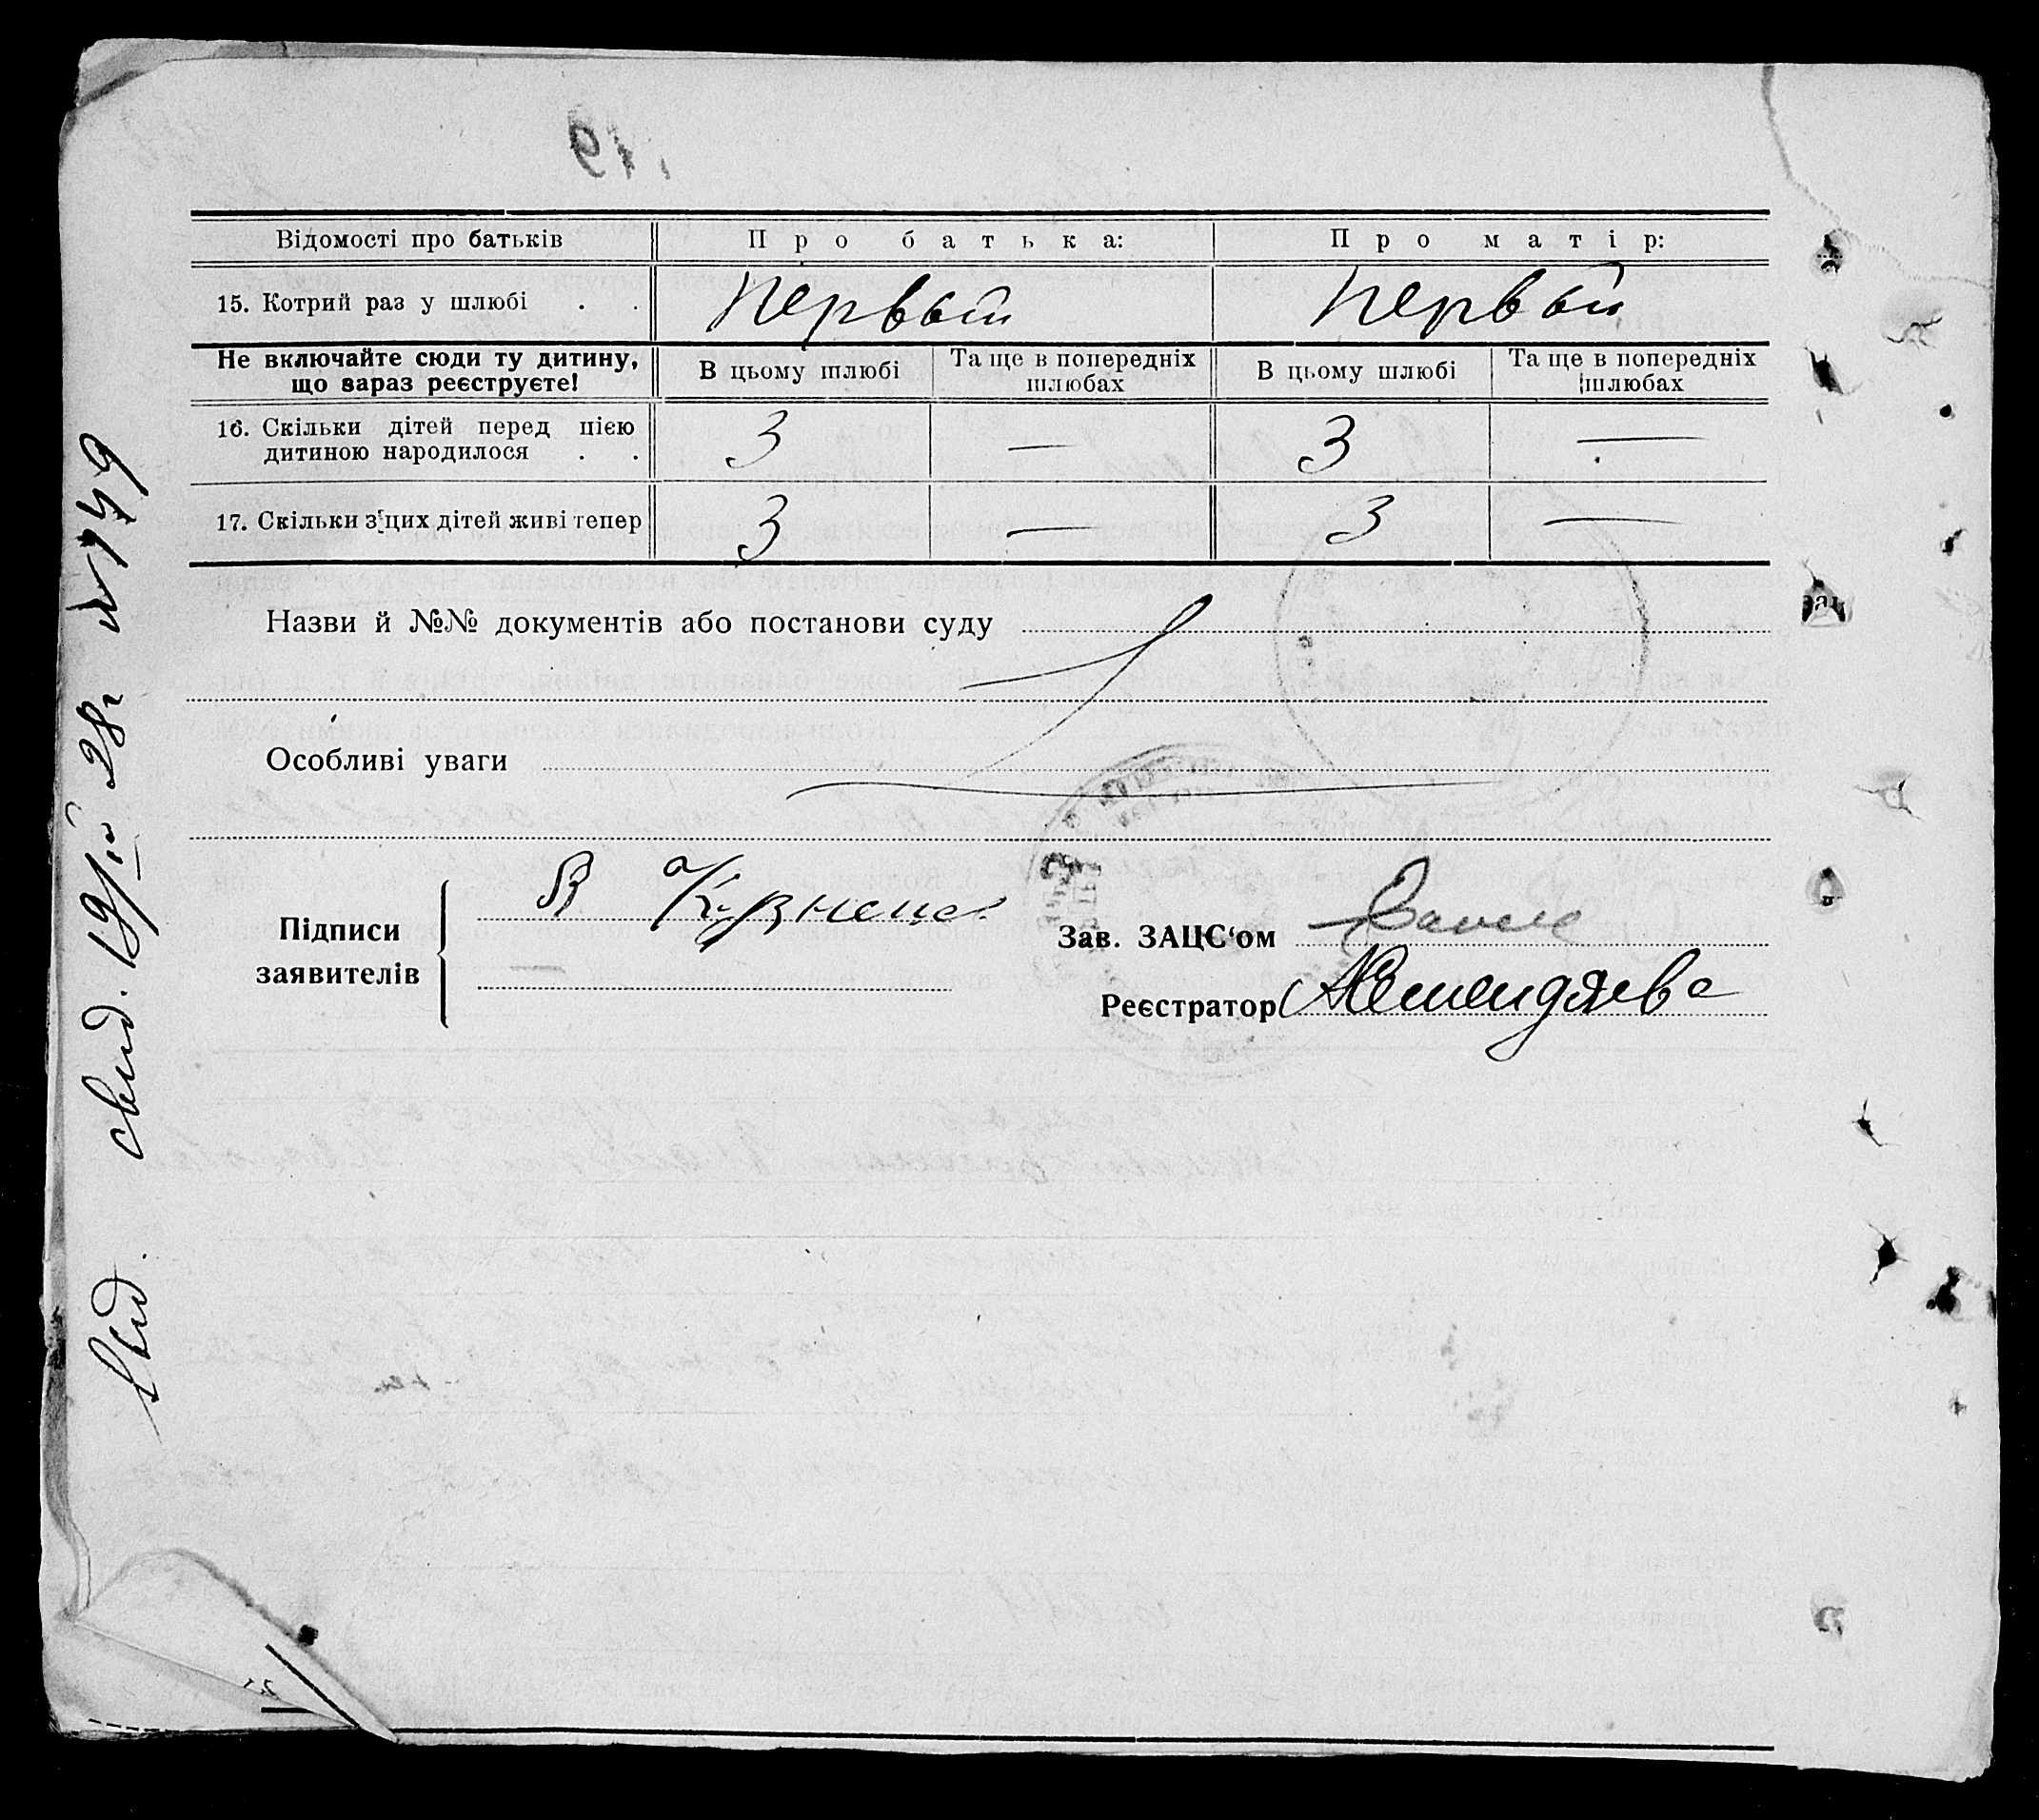 Відомості про батьків Про батька: Про матір:
15. Котрий раз у шлюбі . . первый первый
Не включайте сюди ту дитину, що зараз реєструєте! В цьому шлюбі Та ще в попередніх шлюбах В цьому шлюбі Та ще в попередніх шлюбах
16. Скільки дітей перед цією дитиною народилося . . 3 — 3 —
17. Скільки з цих дітей живі тепер 3 — 3 —
Назви й №№ документів або постанови суду
Особливі уваги
Підписи заявителів
Зав. ЗАЦС'ом
Реєстратор
свид. 19/IV 28г №749